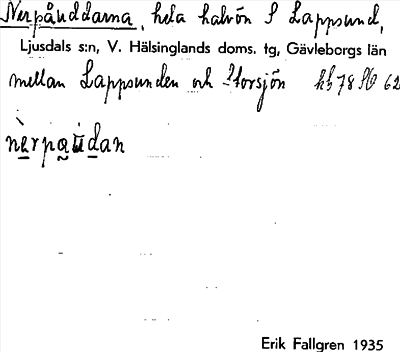 Nerpåuddarna, hela halvön S Lappsund,
Ljusdals s:n, V. Hälsinglands doms. tg, Gävleborgs län
mellan Lappsunden och Storsjön kb 78 SV 62
nerpaudan
Erik Fallgren 1935